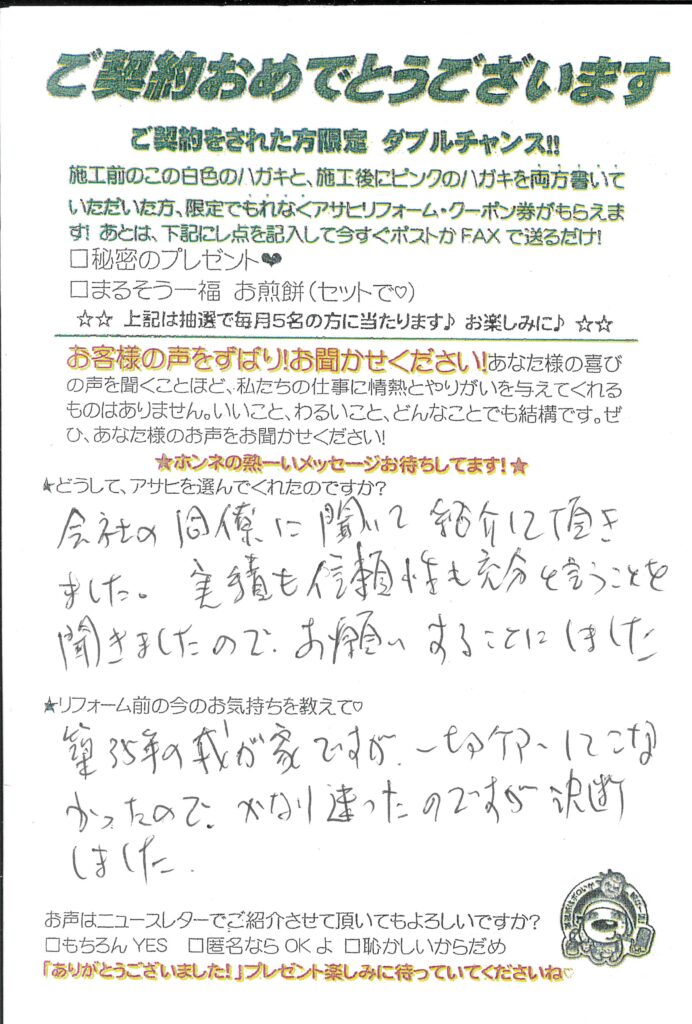 ご契約おめでとうございます
ご契約をされた方限定 ダブルチャンス!!
施工前のこの白色のハガキと、施工後にピンクのハガキを両方書いて
いただいた方、限定でもれなくアサヒリフォーム・クーポン券がもらえま
す! あとは、下記にレ点を記入して今すぐポストかFAXで送るだけ!
□秘密のプレゼント❤
□まるそう一福 お煎餅(セットで♡)
☆☆ 上記は抽選で毎月5名の方に当たります♪ お楽しみに♪ ☆☆
お客様の声をずばり!お聞かせください!あなた様の喜び
の声を聞くことほど、私たちの仕事に情熱とやりがいを与えてくれる
ものはありません。いいこと、わるいこと、どんなことでも結構です。ぜ
ひ、あなた様のお声をお聞かせください!
★ホンネの熱ーいメッセージお待ちしてます!★
★どうして、アサヒを選んでくれたのですか?
会社の同僚に聞いて紹介して頂き
ました。実績も信頼性も充分と言うことを
聞きましたので、お願いすることにしました
★リフォーム前の今のお気持ちを教えて♡
築35年の我が家ですが、一切ケアーしてこな
かったので、かなり迷ったのですが決断
しました.
お声はニュースレターでご紹介させて頂いてもよろしいですか?
□もちろんYES □匿名ならOKよ □恥かしいからだめ
「ありがとうございました!」プレゼント楽しみに待っていてくださいね♡